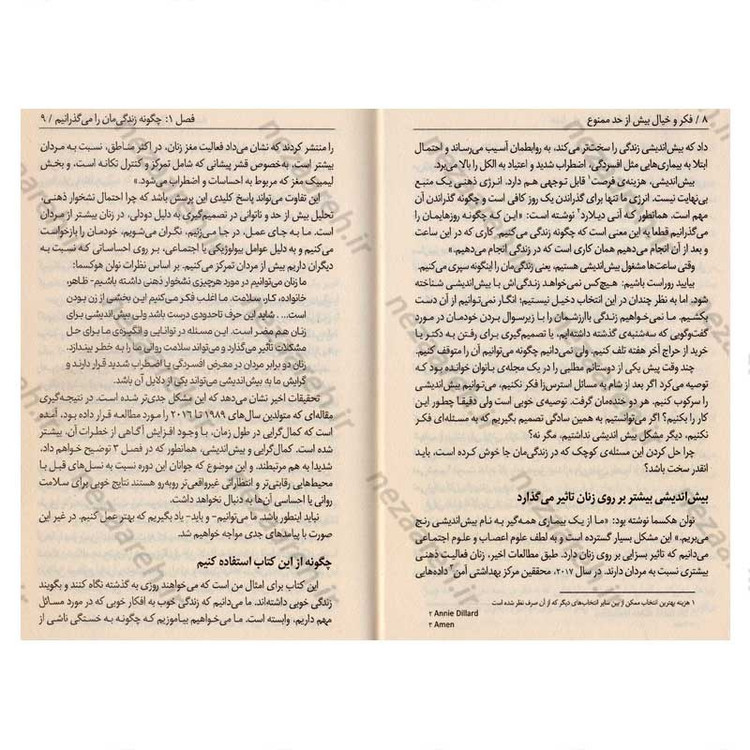 ۸ / فکر و خیال بیش از حد ممنوع
داد که بیش‌اندیشی زندگی را سخت‌تر می‌کند، به روابطمان آسیب می‌رساند و احتمال
ابتلا به بیماری‌هایی مثل افسردگی، اضطراب شدید و اعتیاد به الکل را بالا می‌برد.
بیش‌اندیشی، هزینه‌ی فرصت۱ قابل توجهی هم دارد. انرژی ذهنی یک منبع
بی‌نهایت نیست. انرژی ما تنها برای گذراندن یک روز کافی است و چگونه گذراندن آن
مهم است. همانطور که آنی دیلارد۲ نوشته است: «این که چگونه روزهایمان را
می‌گذرانیم قطعا به این معنی است که چگونه زندگی می‌کنیم. کاری که در این ساعت
و بعد از آن انجام می‌دهیم همان کاری است که در زندگی انجام می‌دهیم.»
وقتی ساعت‌ها مشغول بیش‌اندیشی هستیم، یعنی زندگی‌مان را اینگونه سپری می‌کنیم.
بیایید روراست باشیم: هیچ‌کس نمی‌خواهد زندگی‌اش با بیش‌اندیشی شناخته
شود. اما به نظر چندان در این انتخاب دخیل نیستیم؛ انگار نمی‌توانیم از آن دست
بکشیم. ما نمی‌خواهیم زندگی باارزشمان را با زیرسوال بردن خودمان در مورد
گفت‌وگویی که سه‌شنبه‌ی گذشته داشته‌ایم، یا تصمیم‌گیری برای رفتن به دکتر یا
خرید از حراج آخر هفته تلف کنیم. ولی نمی‌دانیم چگونه می‌توانیم آن را متوقف کنیم.
چند وقت پیش یکی از دوستانم مطلبی را در یک مجله‌ی بانوان خوانده بود که
توصیه می‌کرد اگر بعد از شام به مسائل استرس‌زا فکر نکنیم، می‌توانیم بیش‌اندیشی
را سرکوب کنیم. هر دو خنده‌مان گرفت. توصیه‌ی خوبی است ولی دقیقا چطور این
کار را بکنیم؟ اگر می‌توانستیم به همین سادگی تصمیم بگیریم که به مسئله‌ای فکر
نکنیم، دیگر مشکل بیش اندیشی نداشتیم، مگر نه؟
چرا حل کردن این مسئله‌ی کوچک که در زندگی‌مان جا خوش کرده است، باید
انقدر سخت باشد؟
بیش‌اندیشی بیشتر بر روی زنان تاثیر می‌گذارد
نولن هکسما نوشته بود: «ما از یک بیماری همه‌گیر به نام بیش‌اندیشی رنج
می‌بریم.» این مشکل بسیار گسترده است و به لطف علوم اعصاب و علوم اجتماعی
می‌دانیم که تاثیر بسزایی بر روی زنان دارد. طبق مطالعات اخیر، زنان فعالیت ذهنی
بیشتری نسبت به مردان دارند. در سال ۲۰۱۷، محققین مرکز بهداشتی آمن۳ داده‌هایی
۱ هزینه بهترین انتخاب ممکن از بین سایر انتخاب‌های دیگر که از آن صرف نظر شده است
۲ Annie Dillard
۳ Amen
فصل ۱: چگونه زندگی‌مان را می‌گذرانیم / ۹
را منتشر کردند که نشان می‌داد فعالیت مغز زنان، در اکثر مناطق، نسبت به مردان
بیشتر است، به‌خصوص قشر پیشانی که شامل تمرکز و کنترل تکانه است، و بخش
لیمبیک مغز که مربوط به احساسات و اضطراب می‌شود.»
این تفاوت می‌تواند پاسخ کلیدی این پرسش باشد که چرا احتمال نشخوار ذهنی،
تحلیل بیش از حد و ناتوانی در تصمیم‌گیری به دلیل دودلی، در زنان بیشتر از مردان
است. ما به جای عمل، در جا می‌زنیم، نگران می‌شویم، خودمان را بازخواست
می‌کنیم و به دلیل عوامل بیولوژیکی یا اجتماعی، بر روی احساساتی که نسبت به
دیگران داریم بیش از مردان تمرکز می‌کنیم. بر اساس نظرات نولن هوکسما:
ما زنان می‌توانیم در مورد هرچیزی نشخوار ذهنی داشته باشیم- ظاهر،
خانواده، کار، سلامت. ما اغلب فکر می‌کنیم این بخشی از زن بودن
است... . شاید این حرف تاحدودی درست باشد ولی بیش‌اندیشی برای
زنان هم مضر است. این مسئله در توانایی و انگیزه‌ی ما برای حل
مشکلات تأثیر می‌گذارد و می‌تواند سلامت روانی ما را به خطر بیندازد.
زنان دو برابر مردان در معرض افسردگی یا اضطراب شدید قرار دارند و
گرایش ما به بیش‌اندیشی می‌تواند یکی از دلایل آن باشد.
تحقیقات اخیر نشان می‌دهد که این مشکل جدی‌تر شده است. در نتیجه‌گیری
مقاله‌ای که متولدین سال‌های ۱۹۸۹ تا ۲۰۱۶ را مورد مطالعه قرار داده بود، آمده
است که کمال‌گرایی در طول زمان، با وجود افزایش آگاهی از خطرات آن، بیشتر
شده است. کمال‌گرایی و بیش‌اندیشی، همانطور که در فصل ۳ توضیح خواهم داد،
شدیدا به هم مرتبطند. و این موضوع که جوانان این دوره نسبت به نسل‌های قبل با
محیط‌هایی رقابتی‌تر و انتظاراتی غیرواقعی‌تر روبه‌رو هستند نتایج خوبی برای سلامت
روانی یا احساسی آن‌ها به دنبال نخواهد داشت.
نباید اینطور باشد. ما می‌توانیم- و باید- یاد بگیریم که بهتر عمل کنیم. در غیر این
صورت با پیامدهای جدی مواجه خواهیم شد.
چگونه از این کتاب استفاده کنیم
این کتاب برای امثال من است که می‌خواهند روزی به گذشته نگاه کنند و بگویند
زندگی خوبی داشته‌اند. ما می‌دانیم که زندگی خوب به افکار خوبی که در مورد مسائل
مهم داریم، وابسته است. ما می‌خواهیم بیاموزیم که چگونه به خستگی ناشی از
nezareh.ir